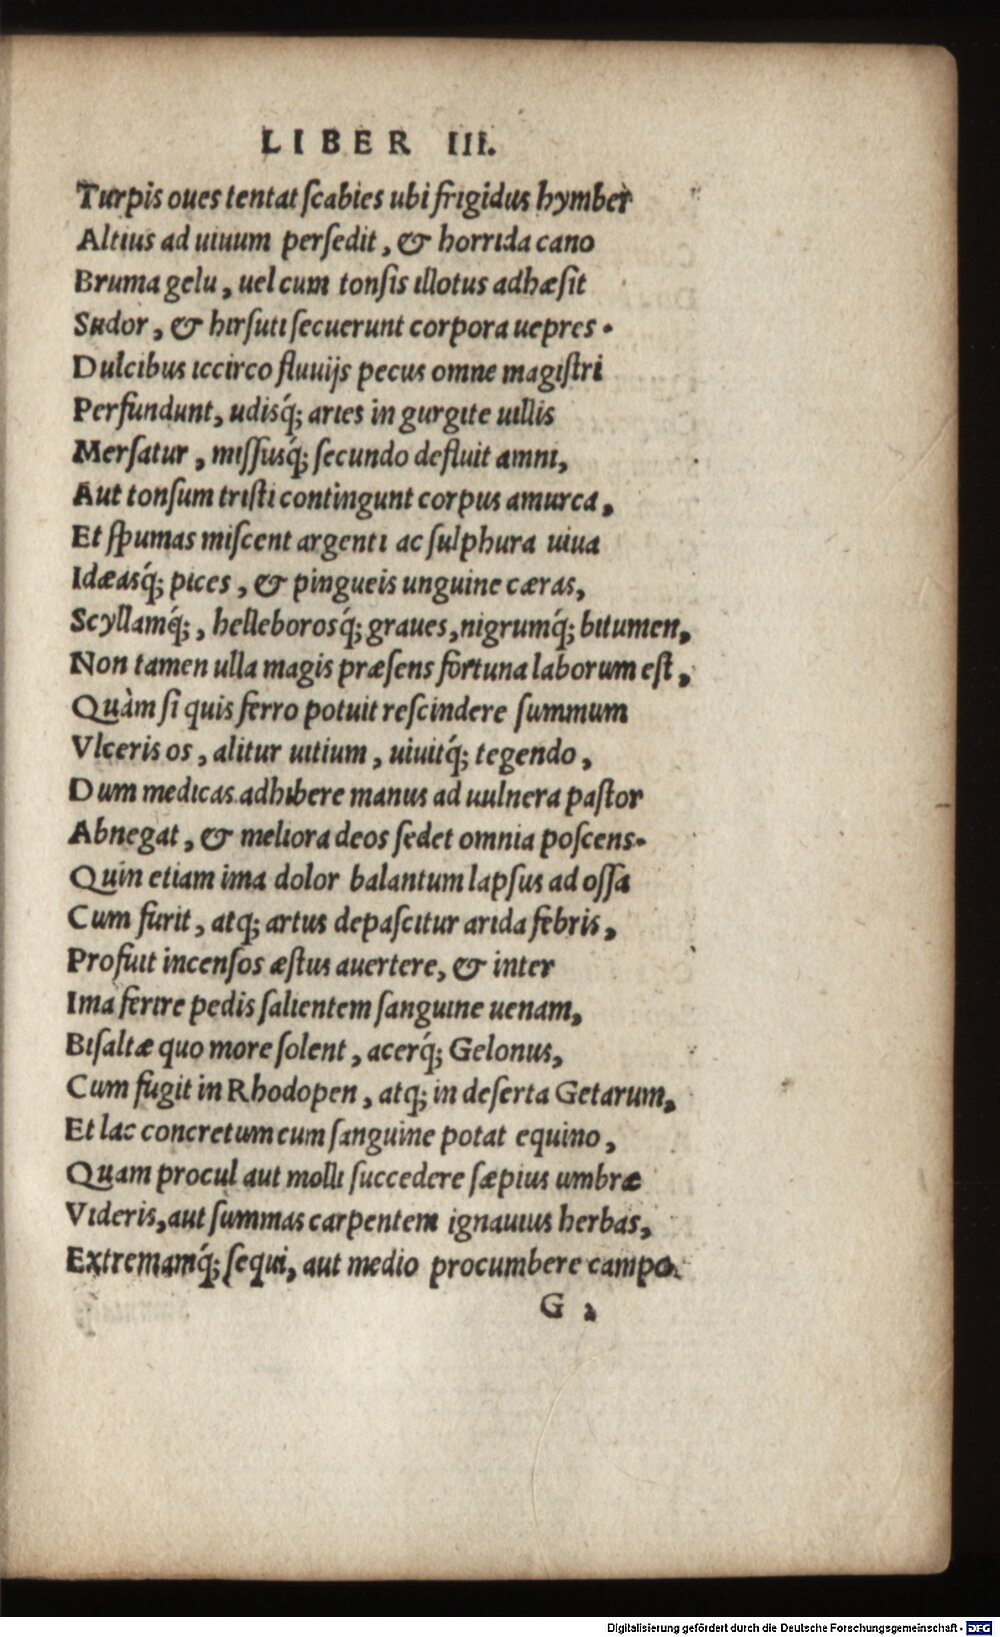 LIBER III.
Turpis oues tentat ſcabies ubi frigidus hymber
Altius ad uiuum perſedit, & horrida cano
Bruma gelu, uel cum tonſis illotus adhæſit
Sudor, & hirſuti ſecuerunt corpora uepres.
Dulcibus iccirco fluuijs pecus omne magiſtri
Perfundunt, udisq́; aries in gurgite uillis
Merſatur, miſſusq́; ſecundo defluit amni,
Aut tonſum triſti contingunt corpus amurca,
Et ſpumas miſcent argenti ac ſulphura uiua
Idæasq́; pices, & pingueis unguine cæras,
Scyllamq́;, helleborosq́; graues, nigrumq́; bitumen,
Non tamen ulla magis præſens fortuna laborum eſt,
Quàm ſi quis ferro potuit reſcindere ſummum
Vlceris os, alitur uitium, uiuitq́; tegendo,
Dum medicas adhibere manus ad uulnera paſtor
Abnegat, & meliora deos ſedet omnia poſcens.
Quin etiam ima dolor balantum lapſus ad oſſa
Cum furit, atq; artus depaſcitur arida febris,
Profuit incenſos æſtus auertere, & inter
Ima ferire pedis ſalientem ſanguine uenam,
Biſaltæ quo more ſolent, acerq́; Gelonus,
Cum fugit in Rhodopen, atq; in deſerta Getarum,
Et lac concretum cum ſanguine potat equino,
Quam procul aut molli ſuccedere ſæpius umbræ
Videris, aut ſummas carpentem ignauius herbas,
Extremamq́; ſequi, aut medio procumbere campo.
G 2
Digitalisierung gefördert durch die Deutsche Forschungsgemeinschaft - DFG